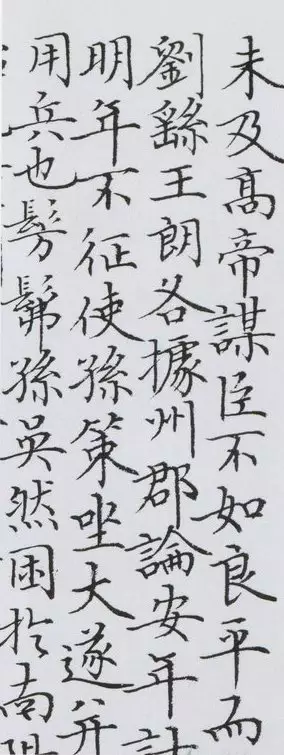 未及高帝謀臣不如良平而
劉繇王朗各據州郡論安年計
明年不征使孫策坐大遂并
用兵也髣髴孫吳然困於南陽